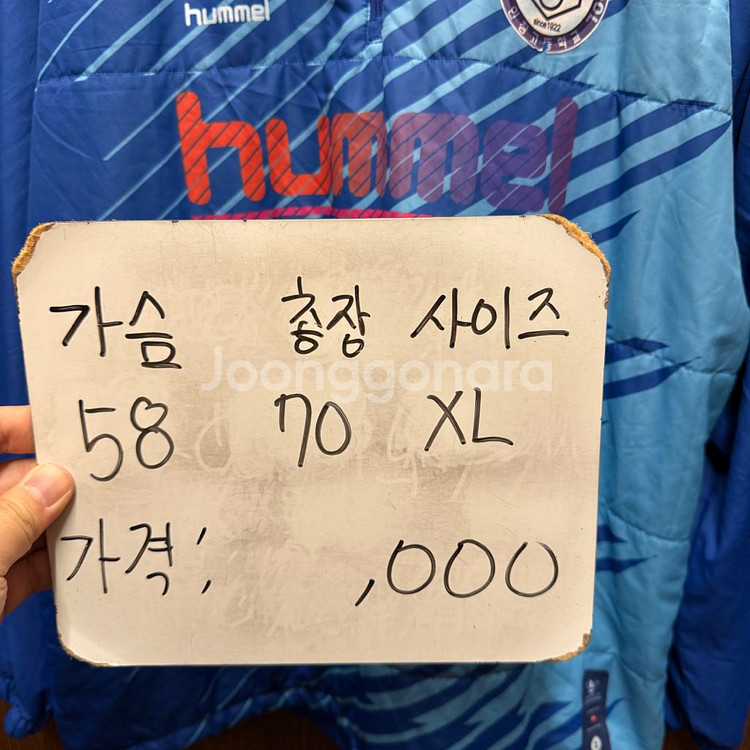 hummel
since1922
hummel
가슴 총장 사이즈
Joonggonara
58 70 XL
가격; ,000